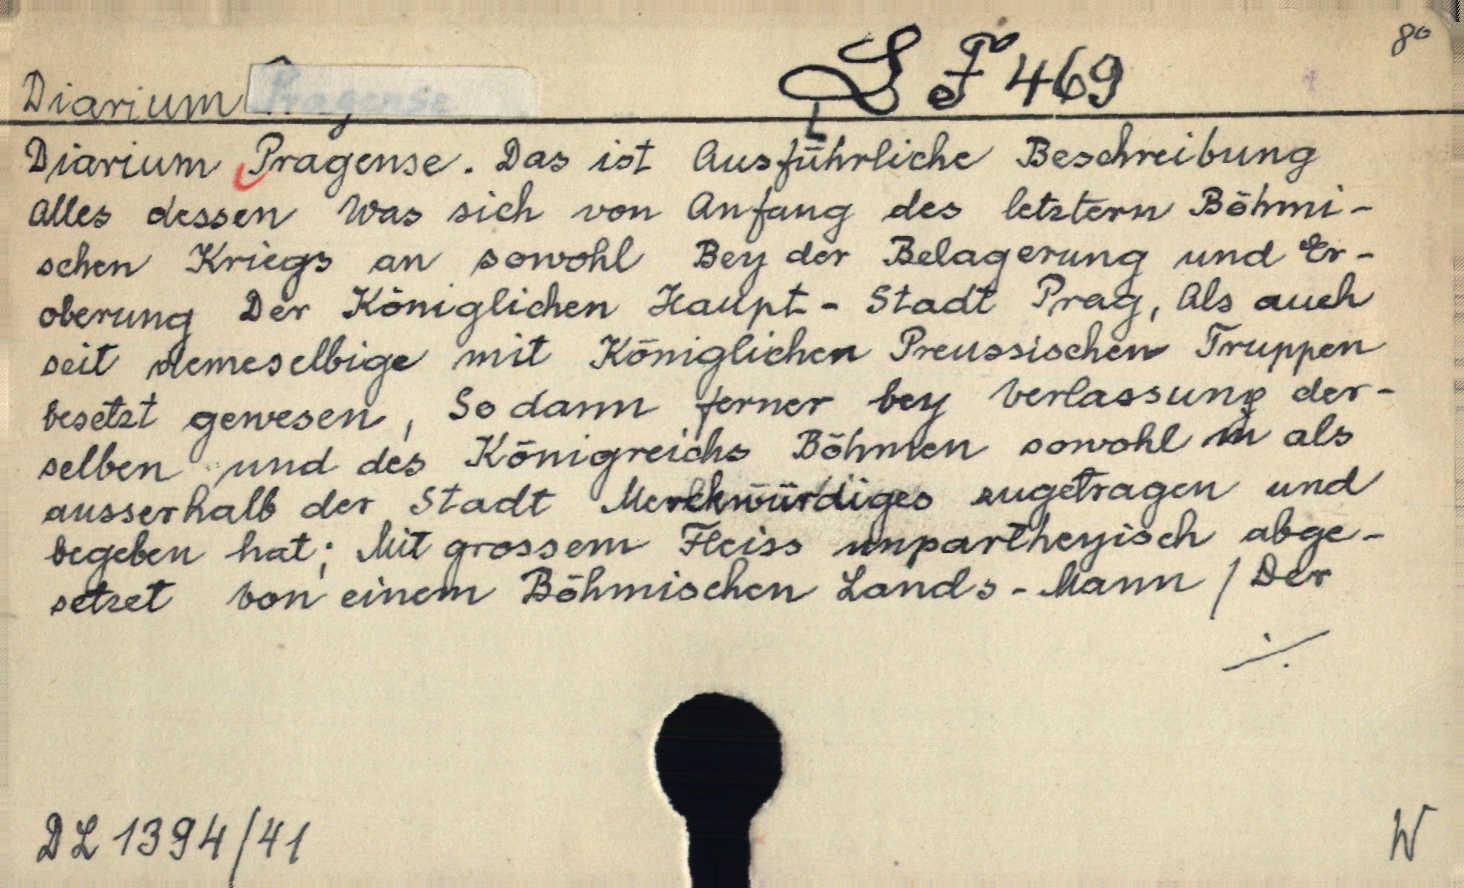 Diarium Pragense L F 469 8°
Diarium Pragense. Das ist Ausführliche Beschreibung
Alles dessen Was sich von Anfang des letztern Böhmi-
schen Kriegs an sowohl Bey der Belagerung und Er-
oberung Der Königlichen Haupt-Stadt Prag, Als auch
seit demeselbige mit Königlichen Preussischen Truppen
besetzt gewesen, So dann ferner bey Verlassung der-
selben und des Königreichs Böhmen sowohl in als
ausserhalb der Stadt Merckwürdiges zugetragen und
begeben hat; Mit grossem Fleiss unpartheyisch abge-
setzet von einem Böhmischen Lands-Mann / Der
./.
DL 1394/41 W